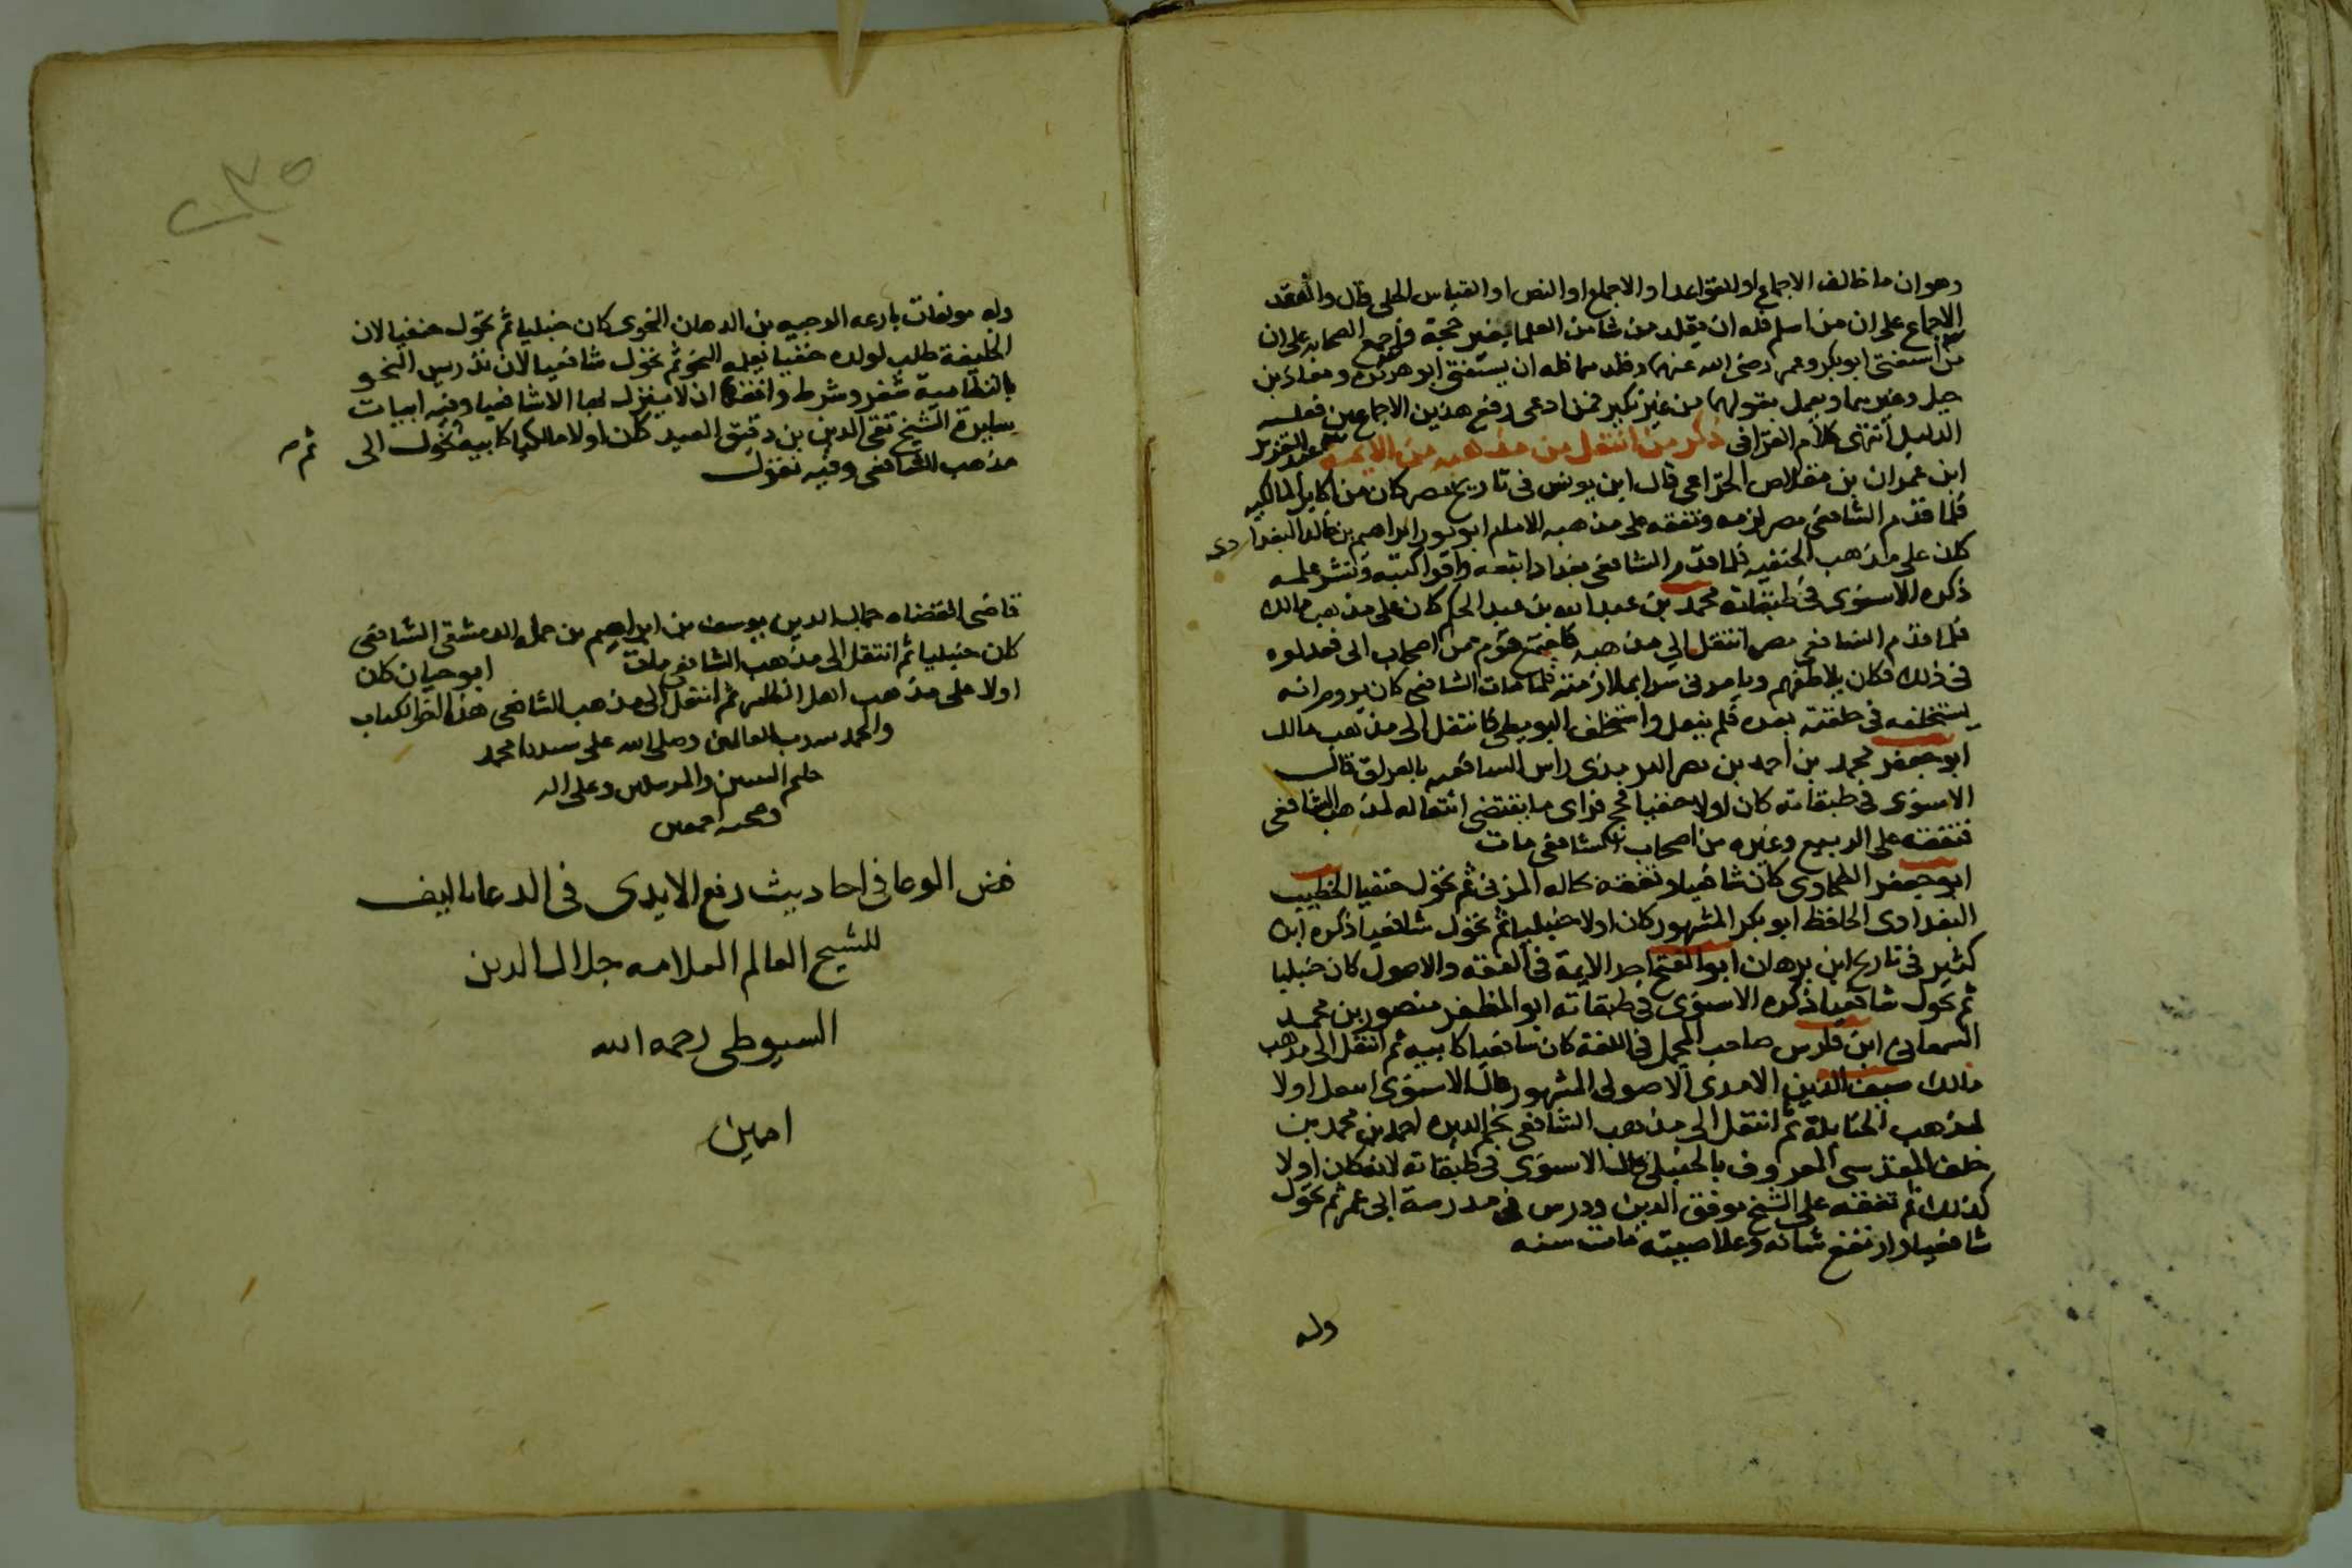 وهو ان ما خالف الاجماع او القواعد او الاجماع او النص او القياس الجلى قال وانعقد
الاجماع على ان من اسلم فله ان يقلد من شا من العلما بغير حجة واجمع الصحابه على ان
من استفتى ابو بكر وعمر رضى الله عنهما وقلدهما فله ان يستفتى ابو هريره ومعاذ بن
جبل وغيرهما ويعمل بقولهما من غير نكير فمن ادعى رفع هذين الاجماعين فعليه
الدليل انتهى كلام القرافى ذكر من انتقل من مذهبه من الايمه عبد العزيز
ابن عمران بن مقلاص الخزاعى قال ابن يونس فى تاريخ مصر كان من اكابر المالكيه
فلما قدم الشافعى مصر لزمه وتفقه على مذهبه الامام ابو ثور ابراهيم بن خالد البغدادى
كان على مذهب الحنفيه فلما قدم الشافعى بغداد اتبعه وقرا كتبه ونشر علمه
ذكره الاسنوى فى طبقاته محمد بن عبد الله بن عبد الحكم كان على مذهب مالك
فلما قدم الشافعى مصر انتقل الى مذهبه فاجتمع قوم من اصحاب ابى فعدلوه
فى ذلك فكان يلاطفهم ويامره فى سرا بملازمته فلما مات الشافعى كان يروم انه
يستخلفه فى حلقته بعده فلم يفعل واستخلف البويطى فانتقل الى مذهب مالك
ابو جعفر محمد بن احمد بن نصر الترمذى راس الشافعيه بالعراق قال
الاسنوى فى طبقاته كان اولا حنفيا فحج فراى ما يقتضى انتقاله لمذهب الشافعى
فتفقه على الربيع وغيره من اصحاب الشافعى مات
ابو جعفر الطحاوى كان شافعيا وتفقه خاله المزنى ثم تحول حنفيا الخطيب
البغدادى الحافظ ابو بكر المشهور كان اولا حنبليا ثم تحول شافعيا ذكره ابن
كثير فى تاريخ ابن برهان ابو الفتح احد الايمة فى الفقه والاصول كان حنبليا
ثم تحول شافعيا ذكره الاسنوى فى طبقاته ابو المظفر منصور بن محمد
السمعانى ابن فارس صاحب المجمل فى اللغة كان شافعيا كابيه ثم انتقل الى مذهب
مالك سيف الدين الامدى الاصولى المشهور قال الاسنوى اشتغل اولا
لمذهب الحنابلة ثم انتقل الى مذهب الشافعى نجم الدين احمد بن محمد بن
خلف المقدسى المعروف بالحنبلى قال الاسنوى فى طبقاته لانه كان اولا
كذلك ثم تفقه على الشيخ موفق الدين ودرس فى مدرسة ابى عمر ثم تحول
شافعيا وارتفع شانه وعلا صيته مات سنه
وله
وله مولفات بارعه الوجيه بن الدهان النحوى كان حنبليا ثم تحول حنفيا لان
الخليفة طلب لولده حنفيا يعلمه النحو ثم تحول شافعيا لان تدريس النحو
بالنظامية شغر وشرط واقفها ان لا ينزل بها الا شافعيا وفيه ابيات
سايرة الشيخ تقى الدين بن دقيق العيد كان اولا مالكيا كابيه تحول الى
مذهب الشافعى وفيه نقول
قاضى القضاه جمال الدين يوسف بن ابراهيم بن جمله الدمشقى الشافعى
كان حنبليا ثم انتقل الى مذهب الشافعى مات ابو حيان كان
اولا على مذهب اهل الظاهر ثم انتقل الى مذهب الشافعى هذا اخر الكتاب
والحمد لله رب العالمين وصلى الله على سيدنا محمد
خاتم النبيين والمرسلين وعلى اله
وصحبه اجمعين
فض الوعا فى احاديث رفع الايدى فى الدعا تاليف
للشيخ العالم العلامه جلال الدين
السيوطى رحمه الله
امين